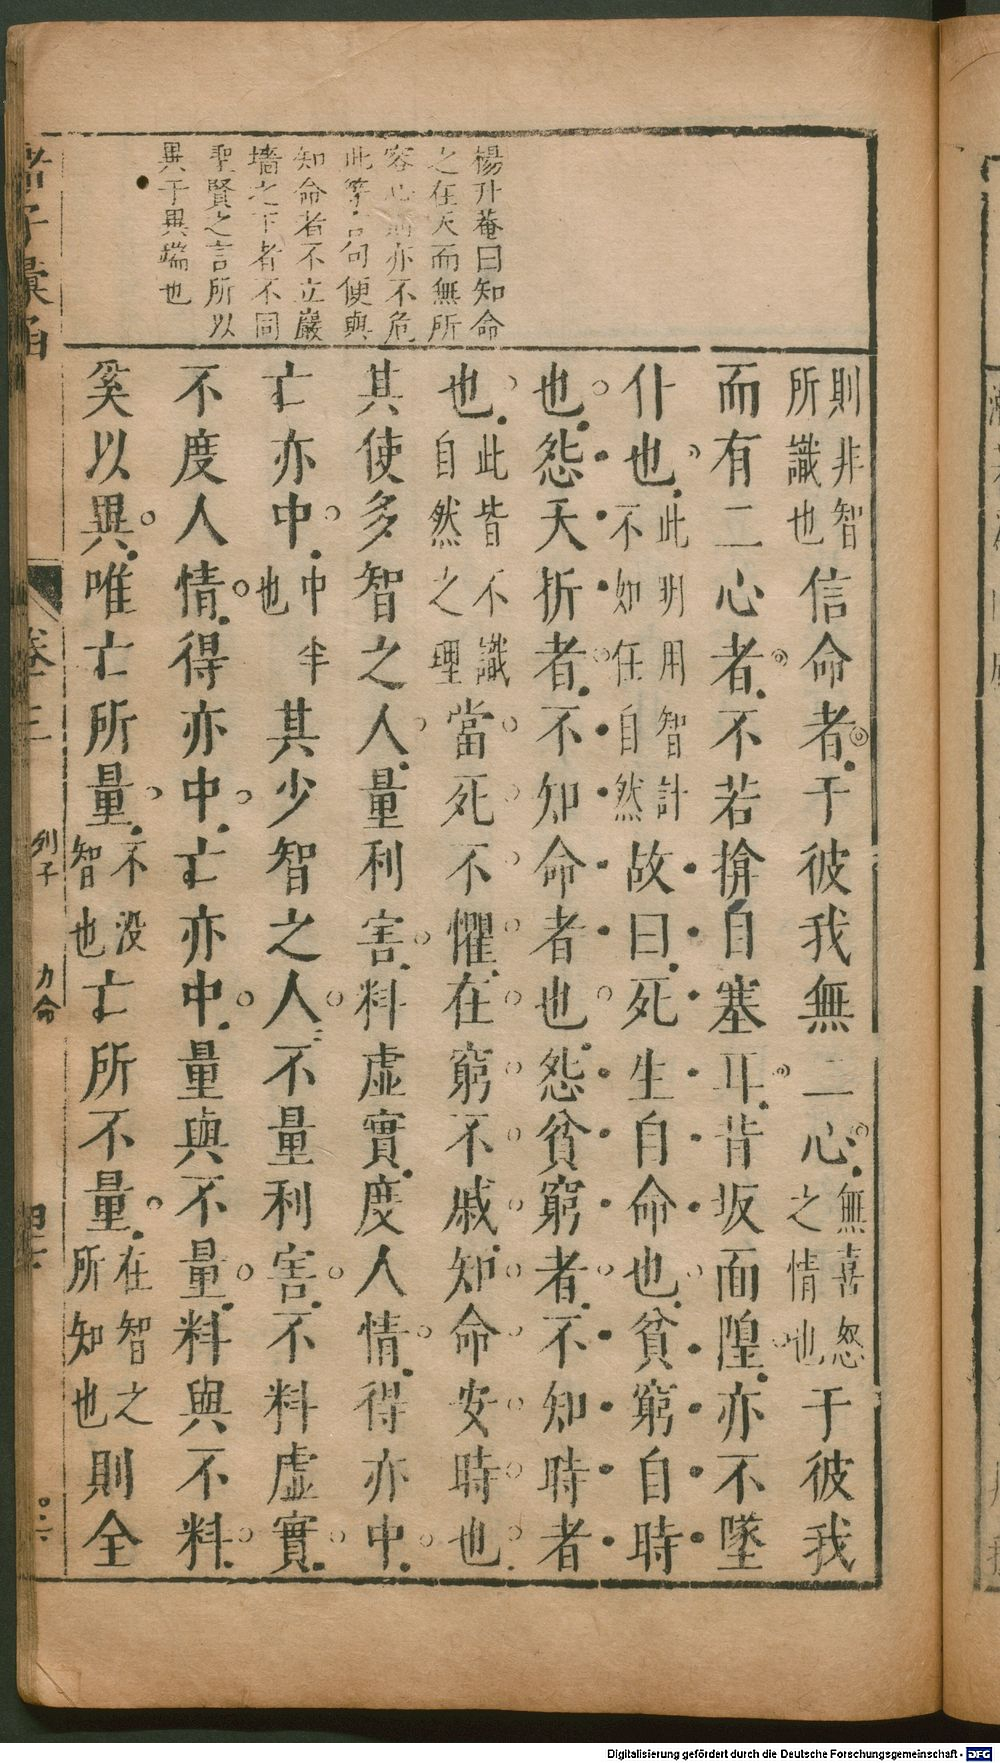 楊升菴曰知命
之在天而無所
容心則亦不危
此等句便與
知命者不立巖
墻之下者不同
聖賢之言所以
異于異端也
則非智所識也信命者于彼我無二心無喜怒之情也于彼我
而有二心者不若揜自塞耳背坂面隍亦不墜
仆也此明用智計不如任自然故曰死生自命也貧窮自時
也怨夭折者不知命者也怨貧窮者不知時者
也此皆不識自然之理當死不懼在窮不戚知命安時也
其使多智之人量利害料虛實度人情得亦中
亡亦中中半也其少智之人不量利害不料虛實
不度人情得亦中亡亦中量與不量料與不料
奚以異唯亡所量不没智也亡所不量在智之所知也則全
諸子彙函 卷三 列子 力命
Digitalisierung gefördert durch die Deutsche Forschungsgemeinschaft - DFG